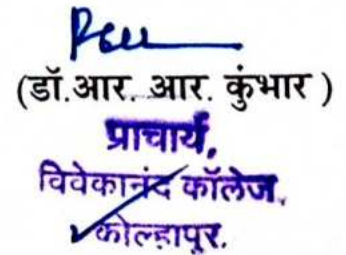 (डॉ.आर. आर. कुंभार )
प्राचार्य,
विवेकानंद कॉलेज,
कोल्हापुर.